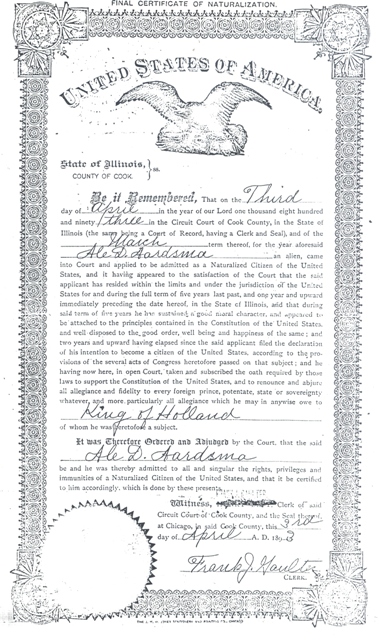 FINAL CERTIFICATE OF NATURALIZATION.
UNITED STATES OF AMERICA.
State of Illinois,
COUNTY OF COOK. } ss.
Be it Remembered, That on the Third
day of April in the year of our Lord one thousand eight hundred
and ninety three in the Circuit Court of Cook County, in the State of
Illinois (the same being a Court of Record, having a Clerk and Seal), and of the
March term thereof, for the year aforesaid
Ale D. Aardsma an alien, came
into Court and applied to be admitted as a Naturalized Citizen of the United
States, and it having appeared to the satisfaction of the Court that the said
applicant has resided within the limits and under the jurisdiction of the United
States for and during the full term of five years last past, and one year and upward
immediately preceding the date hereof, in the State of Illinois, and that during
said term of five years he has sustained a good moral character, and appeared to
be attached to the principles contained in the Constitution of the United States,
and well disposed to the good order, well being and happiness of the same; and
two years and upward having elapsed since the said applicant filed the declaration
of his intention to become a citizen of the United States, according to the pro-
visions of the several acts of Congress heretofore passed on that subject; and he
having now here, in open Court, taken and subscribed the oath required by those
laws to support the Constitution of the United States, and to renounce and abjure
all allegiance and fidelity to every foreign prince, potentate, state or sovereignty
whatever, and more particularly all allegiance which he may in anywise owe to
King of Holland
of whom he was heretofore a subject.
It was Therefore Ordered and Adjudged by the Court, that the said
Ale D. Aardsma
be and he was thereby admitted to all and singular the rights, privileges and
immunities of a Naturalized Citizen of the United States, and that it be certified
to him accordingly, which is done by these presents.
Witness, Clerk of said
Circuit Court of Cook County, and the Seal thereof,
at Chicago, in said Cook County, this 3rd
day of April A. D. 1893
Frank J. Gaulter
CLERK.